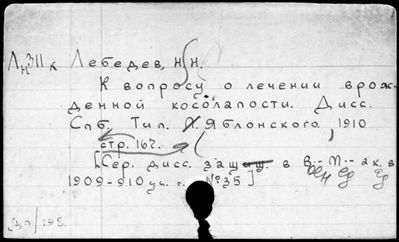 Лн311к Лебедев, Н.Н.
К вопросу о лечении врож-
денной косолапости. Дисс.
Спб. Тип. Я. Яблонского, 1910
стр. 167.
[Сер. дисс. защищ. в В.-М.-ак. в
1909-910 уч. г. №35]